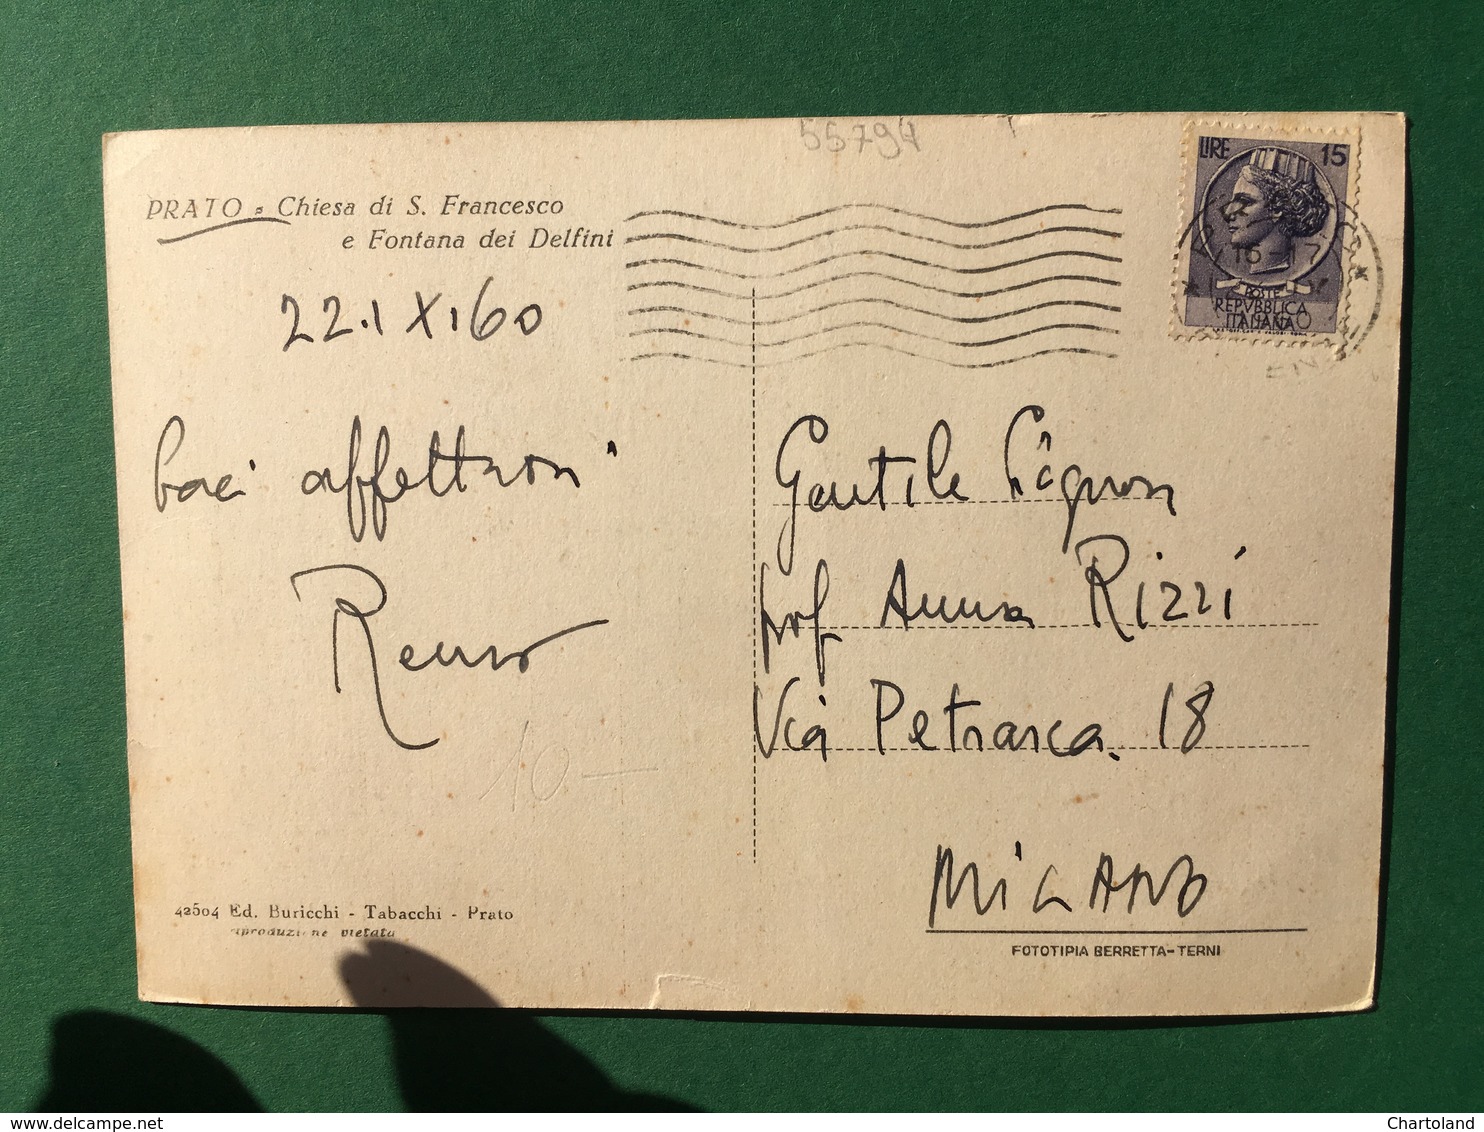 55794
LIRE 15
PRATO - Chiesa di S. Francesco
e Fontana dei Delfini
16-17
POSTE
REPVBBLICA
ITALIANA
22.IX.60
baci affettuosi
Renzo
Gentile Signora
prof Anna Rizzi
Via Petrarca 18
MILANO
10 —
42504 Ed. Buricchi - Tabacchi - Prato
riproduzione vietata
FOTOTIPIA BERRETTA - TERNI
www.delcampe.net
Chartoland